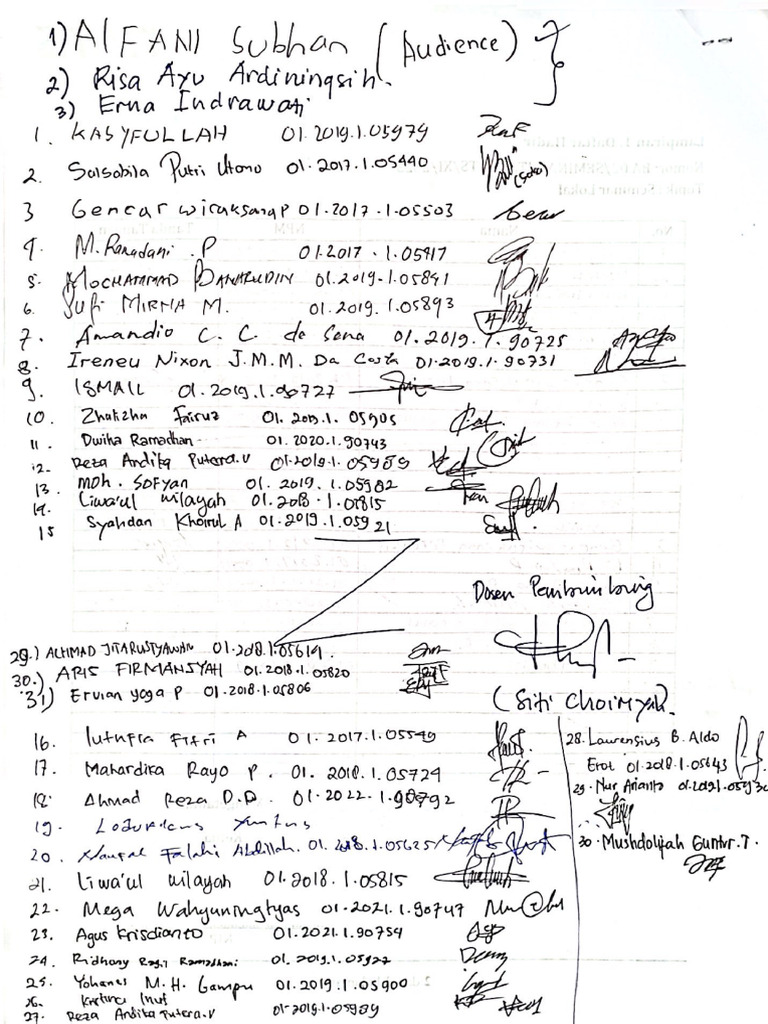 1) AlFANI Subhan (Audience)
2) Risa Ayu Ardiningsih.
3) Erna Indrawati
1. KASYFULLAH 01.2019.1.05979
2. Salsabila Putri Utomo 01.2017.1.05440
3 Gencar wiraksanap 01.2017.1.05503
4. M. Ramadani . P 01.2017.1.05417
5. MOCHAMMAD BAHARUDIN 01.2019.1.05841
6. SUFI MIRNA M. 01.2019.1.05893
7. Amandio C. C. de Sena 01.2019.1.90725
8. Ireneu Nixon J.M.M. Da Costa 01.2019.1.90731
9. ISMAIL 01.2019.1.90727
10. Zhafizha Fairuz 01.2019.1.05905
11. Dwiha Ramadhan 01.2020.1.90743
12. Reza Andika Putera.U 01.2019.1.05989
13. MOH. SOFYAN 01.2019.1.05902
14. Liwa'ul wilayah 01.2018.1.05815
15 Syahdan Khoirul A 01.2019.1.05921
Dosen Pembimbing
(Siti Choiriyah)
29.) ACHMAD JITARUSTYAWAN 01.2018.1.05619
30.) ARIS FIRMANSYAH 01.2018.1.05820
31) Ervian yoga P 01.2018.1.05806
16. lutufia Fitri A 01.2017.1.05549
17. Mahardika Rayo P. 01.2018.1.05729
18. Ahmad Reza D.D. 01.2022.1.90792
19. Yunus
20. Naufal Falahi Abdillah. 01.2018.1.05625
21. Liwa'ul wilayah 01.2018.1.05815
22. Mega Wahyuningtyas 01.2021.1.90747
23. Agus Krisdianto 01.2021.1.90754
24. Ridhony 01.2019.1.05927
25. Yohanes M.H. Gampu 01.2019.1.05900
26. Kristina Inuf
27. Reza Andika Putera.U 01.2019.1.05989
28. Laurensius B. Aldo
Erot 01.2018.1.05643
29. Nur Arianto 01.2019.1.05930
30. Mushdolifah Guntur.T.